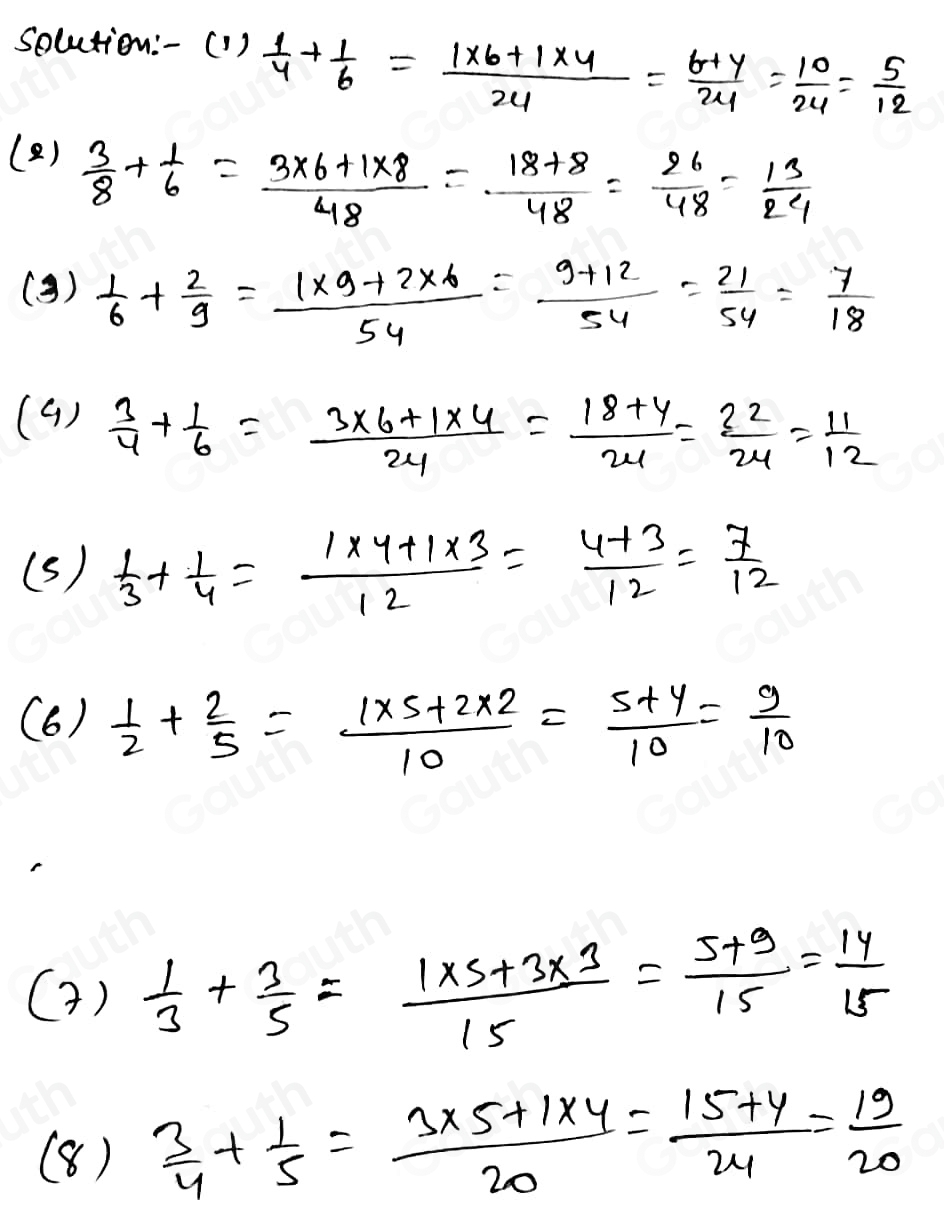 Solution:- (1) 1/4 + 1/6 = (1×6+1×4)/24 = (6+4)/24 = 10/24 = 5/12
(2) 3/8 + 1/6 = (3×6+1×8)/48 = (18+8)/48 = 26/48 = 13/24
(3) 1/6 + 2/9 = (1×9+2×6)/54 = (9+12)/54 = 21/54 = 7/18
(4) 3/4 + 1/6 = (3×6+1×4)/24 = (18+4)/24 = 22/24 = 11/12
(5) 1/3 + 1/4 = (1×4+1×3)/12 = (4+3)/12 = 7/12
(6) 1/2 + 2/5 = (1×5+2×2)/10 = (5+4)/10 = 9/10
(7) 1/3 + 3/5 = (1×5+3×3)/15 = (5+9)/15 = 14/15
(8) 3/4 + 1/5 = (3×5+1×4)/20 = (15+4)/24 = 19/20